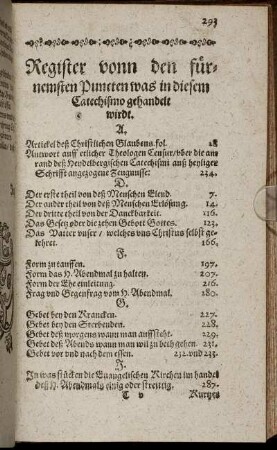 293
Register vonn den für-
nemsten Puncten was in diesem
Catechismo gehandelt
wirdt.
A.
Artickel deß Christlichen Glaubens. fol. 28
Antwort auff etlicher Theologen Censur / vber die am
rand deß Heydelbergischen Catechismi auß heyliger
Schrifft angezogene Zeugnusse: 234.
D.
Der erste theil von deß Menschen Elend. 7.
Der ander theil von deß Menschen Erlösung. 14.
Der dritte theil von der Danckbarkeit. 116.
Das Gesetz oder die zehen Gebott Gottes. 123.
Das Vatter vnser / welches vns Christus selbst ge-
lehret. 166.
F.
Form zu tauffen. 197.
Form das H. Abendmal zu halten. 207.
Form der Ehe einleitung. 216.
Frag vnd Gegenfrag vom H. Abendmal. 180.
G.
Gebet bey den Krancken. 227.
Gebet bey den Sterbenden. 228.
Gebet deß morgens wann man auffsteht. 229.
Gebet deß Abends wann man wil zu beth gehen. 231.
Gebet vor vnd nach dem essen. 232. vnd 233.
J.
In was stücken die Euangelischen Kirchen im handel
deß H. Abendmals einig oder streittig. 287.
T v Kurtzes